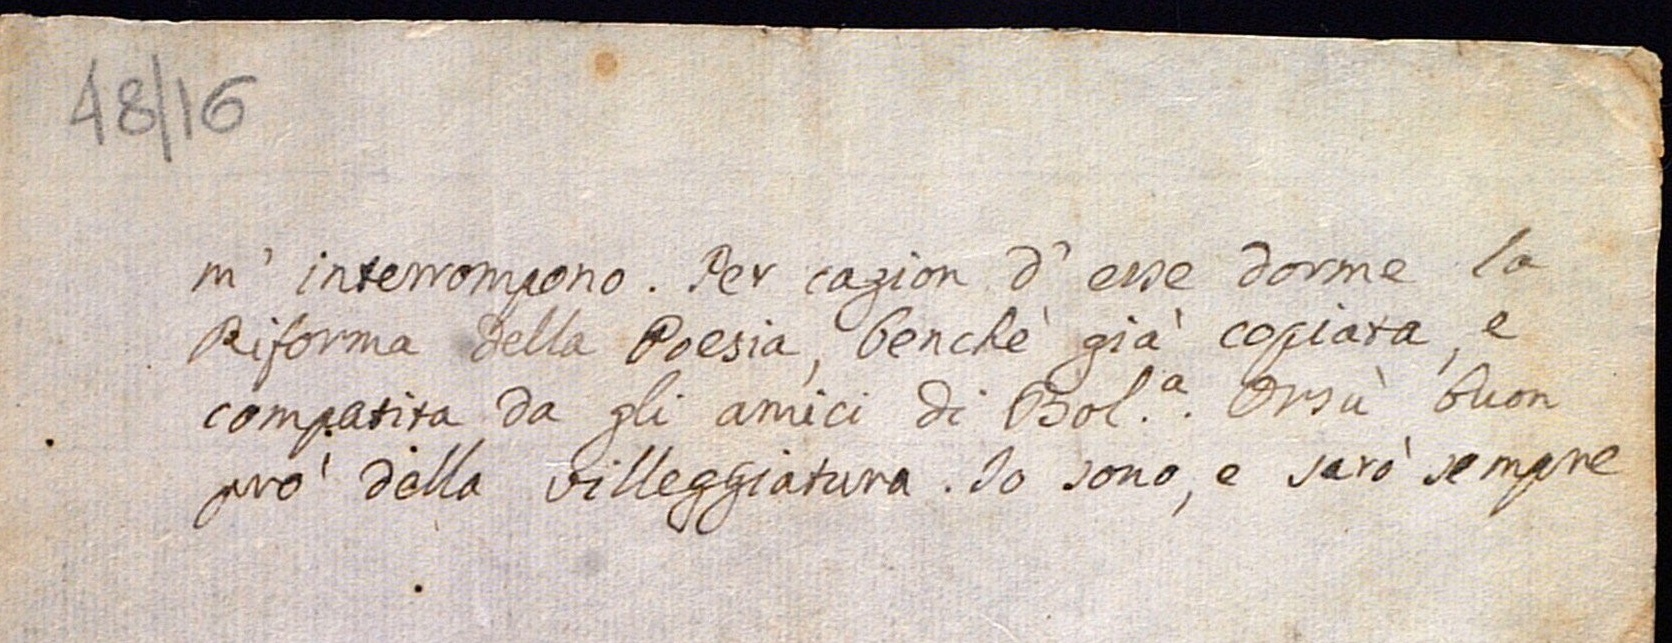 48/16
m' interrompono. Per cagion d' esse dorme la
Riforma della Poesia, benchè già copiata, e
compatita da gli amici di Bol.ª. Orsù buon
prò della villeggiatura. Io sono, e sarò sempre